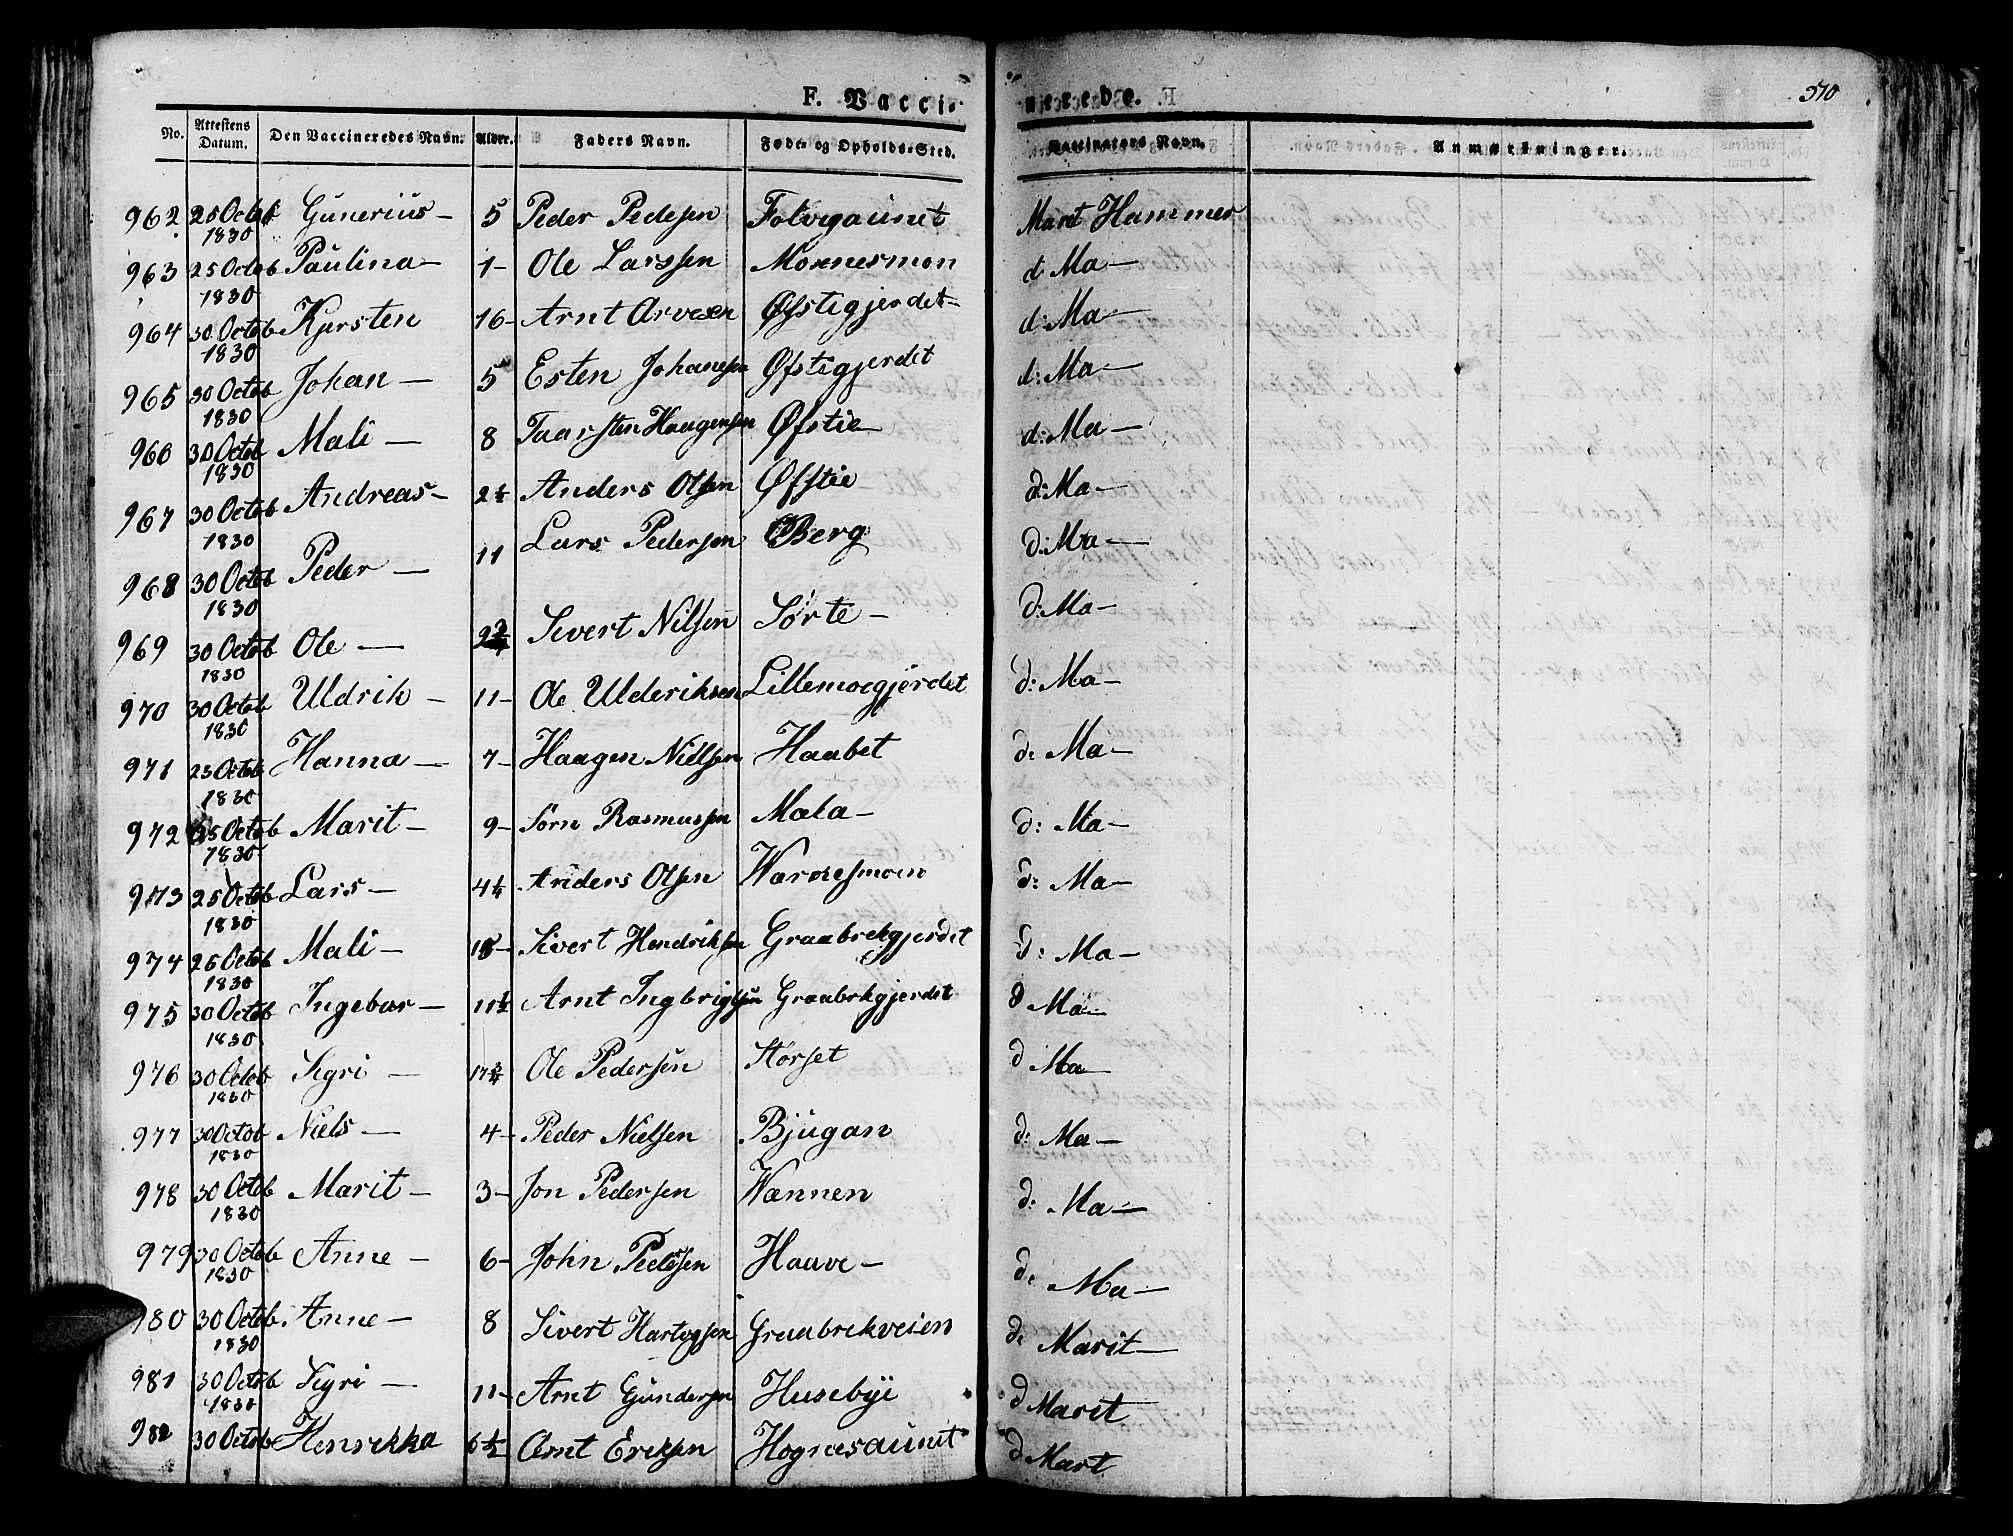 F. Vaccinerede.
570
No. Attestens Datum. Den Vaccineredes Navn. Alder. Faders Navn. Føde- og Opholds-Sted. Vaccinators Navn. Anmærkninger.
962 25 Octob 1830 Gunerius – 5 Peder Pedesen Marit Hammer
963 25 Octob 1830 Paulina – 1 – Ole Larssen Monnesmon d: Ma –
964 30 Octob 1830 Kjersten 16 – Arnt Arvesen Øfstigjerdet – d: Ma –
965 30 Octob 1830 Johan – 5 Esten Johanesen Øfstigjerdet d: Ma –
966 30 Octob 1830 Mali – 8 Taarsten Haagensen Øfstie d: Ma –
967 30 Octob 1830 Andreas – 2½ Anders Olsen Øfstie d: Ma –
968 30 Octob 1830 Peder – 11 Lars Pedersen Berg d: Ma –
969 30 Octob 1830 Ole – Sivert Nilsen Sørte – d: Ma –
970 30 Octob 1830 Uldrik – 11 – Ole Ulderiksen Lillemoegjerdet d: Ma –
971 25 Octob 1830 Hanna – 7 – Haagen Nielsen Haabet d: Ma –
972 25 Octob 1830 Marit – 9 – Sørn Rasmussen Mala – d: Ma –
973 25 Octob 1830 Lars – 4½ Anders Olsen d: Ma –
974 26 Octob 1830 Mali – Sivert Hendriksen Graabrekgjerdet d: Ma –
975 30 Octob 1830 Ingebor – 11½ Arnt Ingbrigtsen Graabrekgjerdet d Ma –
976 30 Octob 1830 Sigri – 17¾ Ole Pedersen Størset d Ma –
977 30 Octob 1830 Niels – 4 – Peder Nielsen Bjugan d: Ma –
978 30 Octob 1830 Marit – 3 – Jon Pedersen Wannen d: Ma –
979 30 Octob 1830 Anne – 6 – John Pedesen Haave – d: Ma –
980 30 Octob 1830 Anne – 8 Sivert Hartvgsen Graabrekveien d: Marit –
981 30 Octob 1830 Sigri – 11 – Arnt Gundersen Husebye d Marit
982 30 Octob Henrikka 6½ Arnt Ericsen Hognesaunet d Mart